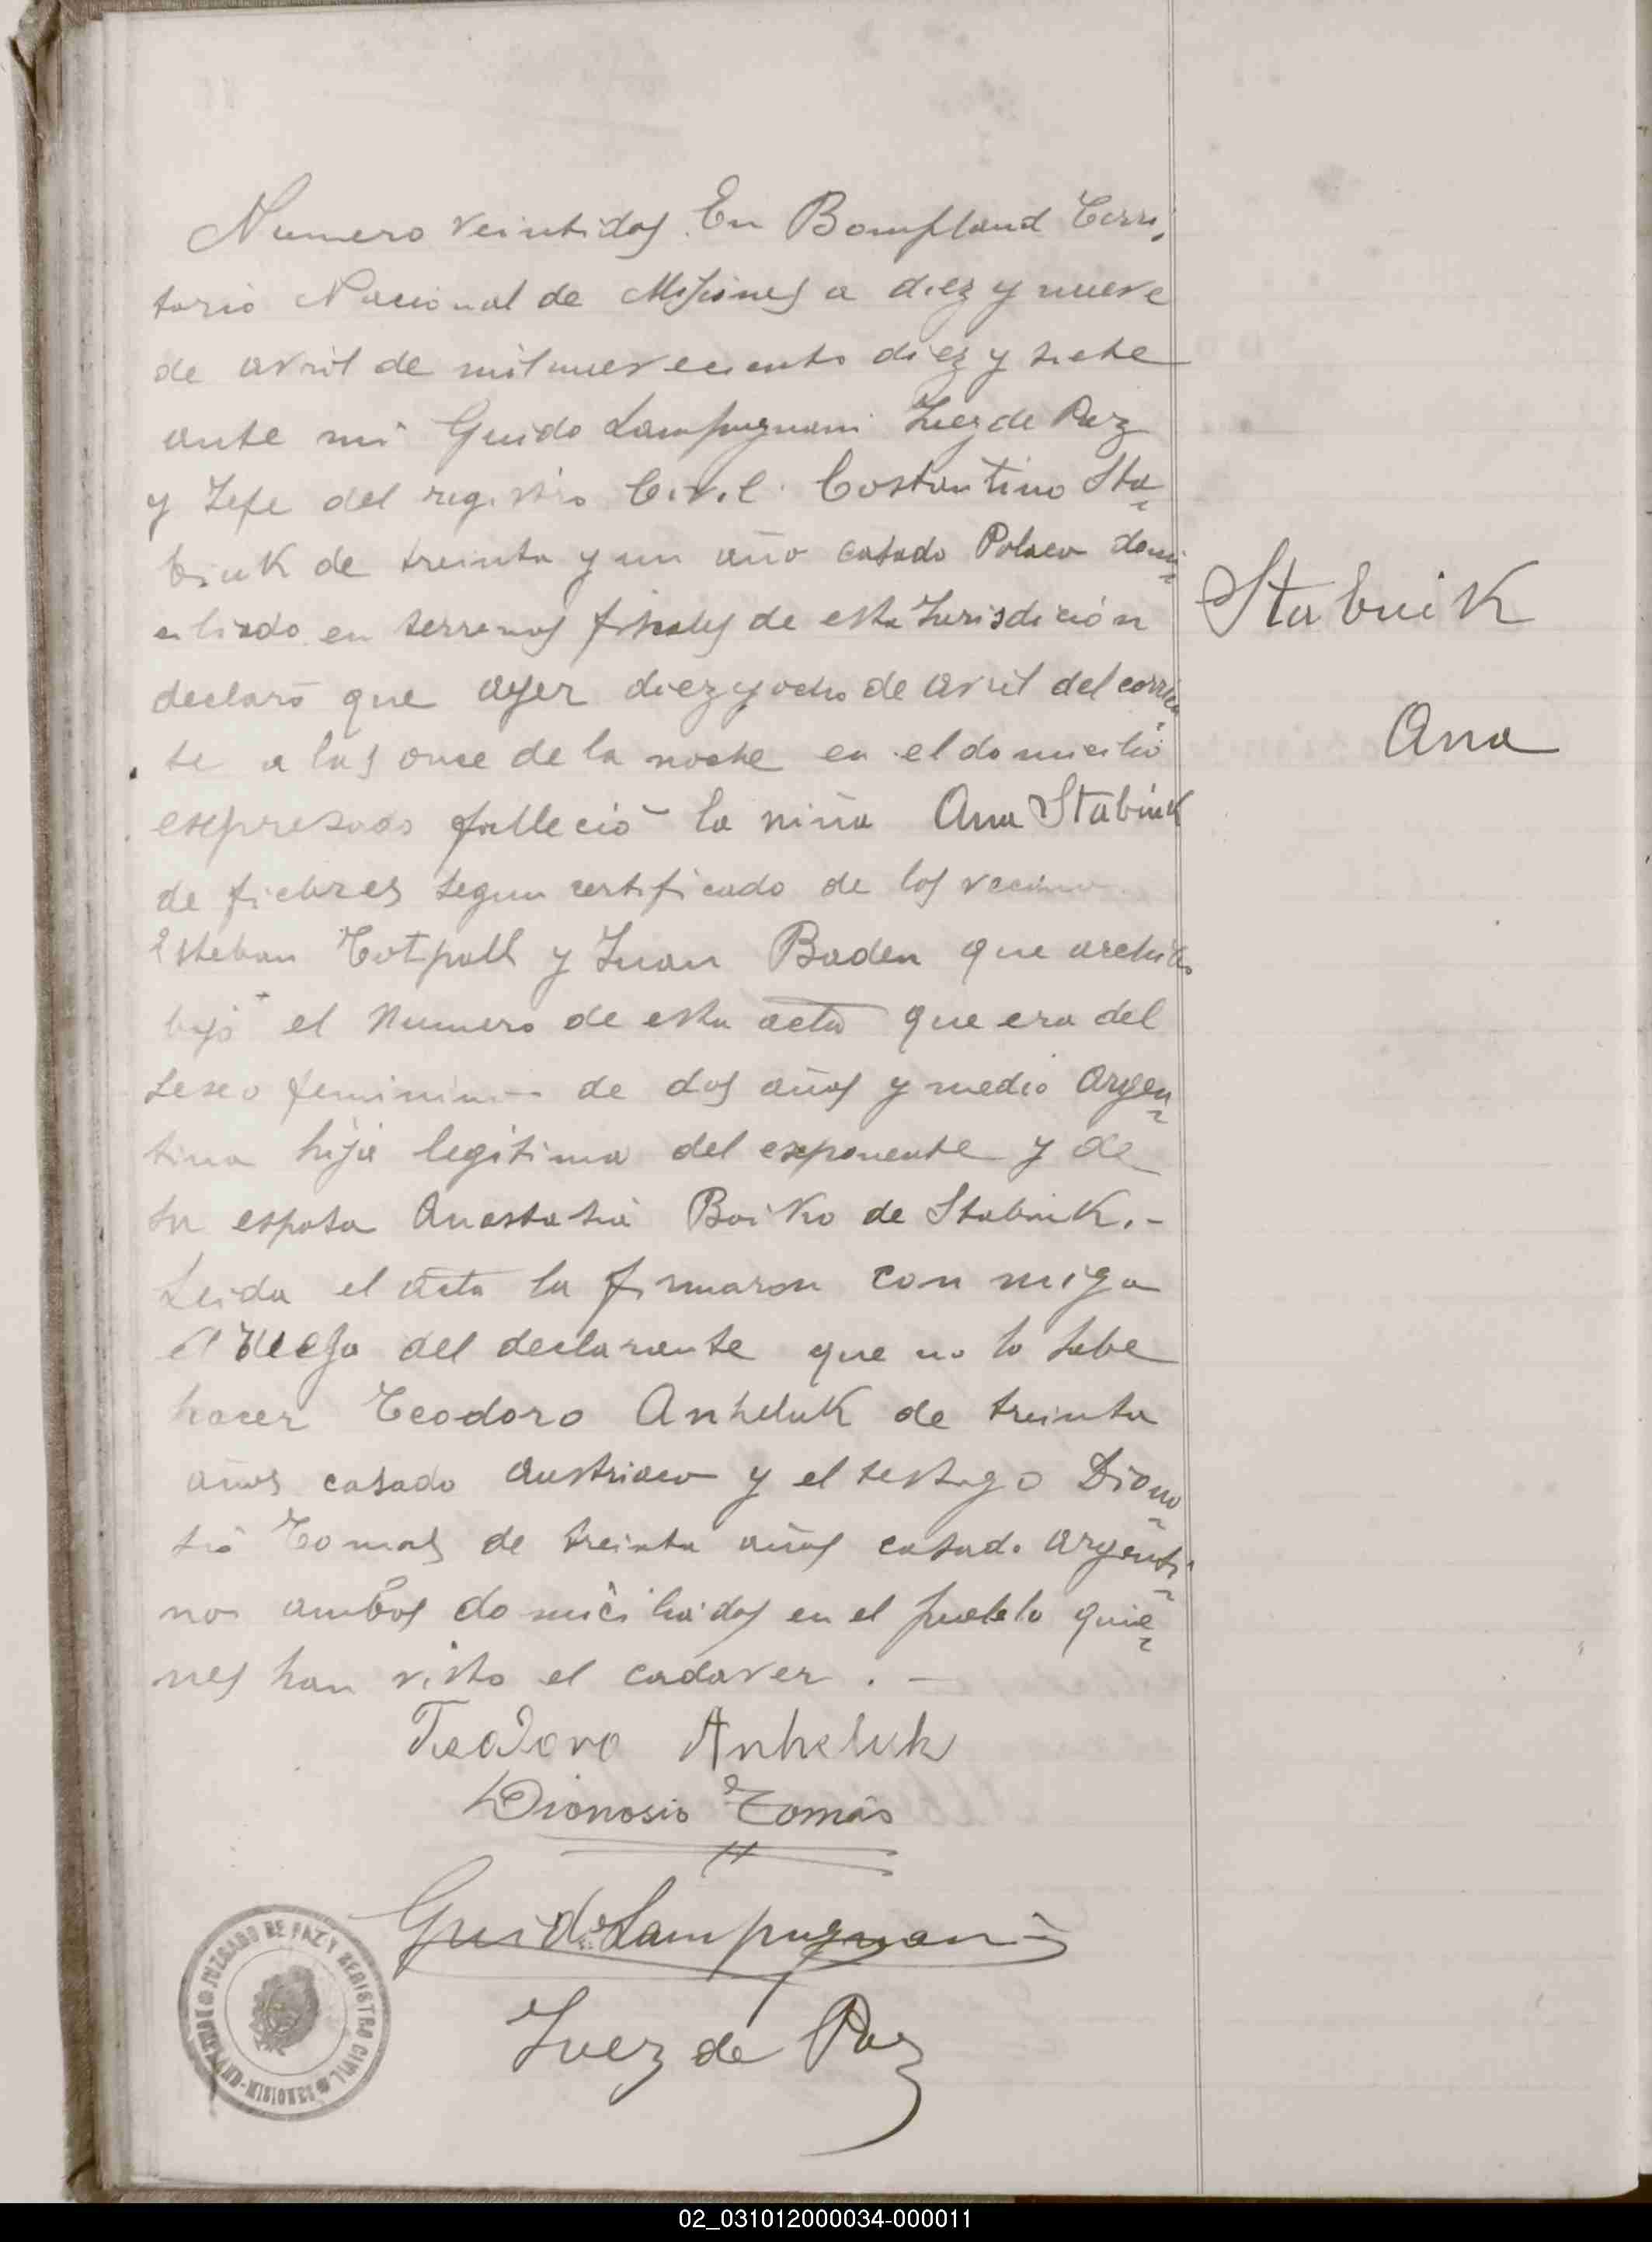 Numero veintidos. En Bompland Terri
torio Nacional de Misiones a diez y nueve
de avril de mil nuevecientos diez y siete
ante mi Guido Lampugnani Juez de Paz
y Jefe del registro Civil. Costantino Sta-
bnik de treinta y un año casado Polaco domi-
ciliado en terrenos fiscales de esta Jurisdición
declaró que ayer diez y ocho de avril del corrien
te a las once de la noche en el domicilio
esepresado falleció la niña Ana Stabnik
de fiebres segun certificado de los vecinos
Esteban y Juan Baden que archibo
bajo el Numero de esta acta que era del
seseo feminino de dos años y medio Argen-
tina hija legitima del exponente y de
su esposa Anastasia Boiko de Stabnik.-
Leida el acta la firmaron con migo
del declarante que no lo sabe
hacer Teodoro Anheluk de treinta
años casado austriaco y el testigo Diono-
sio Tomas de treinta años casado argenti-
nos ambos domiciliados en el pueblo quie-
nes han visto el cadaver. -
Stabnik
Ana
Teodoro Anheluk
Dionosio Tomás
Guido Lampugnani
Juez de Paz
JUZGADO DE PAZ Y REGISTRO CIVIL
MISIONES
02_031012000034-000011